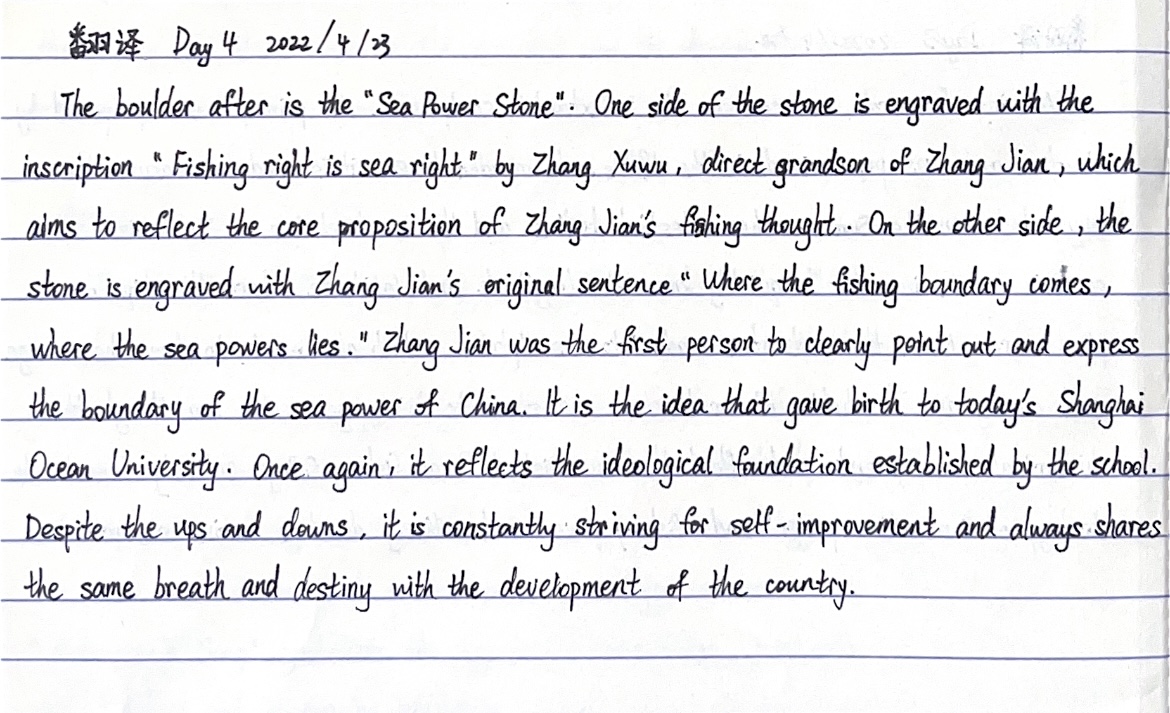 翻译 Day 4 2022/4/23
The boulder after is the "Sea Power Stone". One side of the stone is engraved with the
inscription "Fishing right is sea right" by Zhang Xuwu, direct grandson of Zhang Jian, which
aims to reflect the core proposition of Zhang Jian's fishing thought. On the other side, the
stone is engraved with Zhang Jian's original sentence "Where the fishing boundary comes,
where the sea powers lies." Zhang Jian was the first person to clearly point out and express
the boundary of the sea power of China. It is the idea that gave birth to today's Shanghai
Ocean University. Once again, it reflects the ideological foundation established by the school.
Despite the ups and downs, it is constantly striving for self-improvement and always shares
the same breath and destiny with the development of the country.